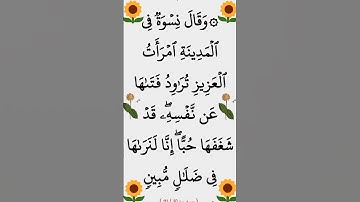 ۞ وَقَالَ نِسْوَةٌ فِى
ٱلْمَدِينَةِ ٱمْرَأَتُ
ٱلْعَزِيزِ تُرَٰوِدُ فَتَىٰهَا
عَن نَّفْسِهِۦ ۖ قَدْ
شَغَفَهَا حُبًّا ۖ إِنَّا لَنَرَىٰهَا
فِى ضَلَـٰلٍ مُّبِينٍ